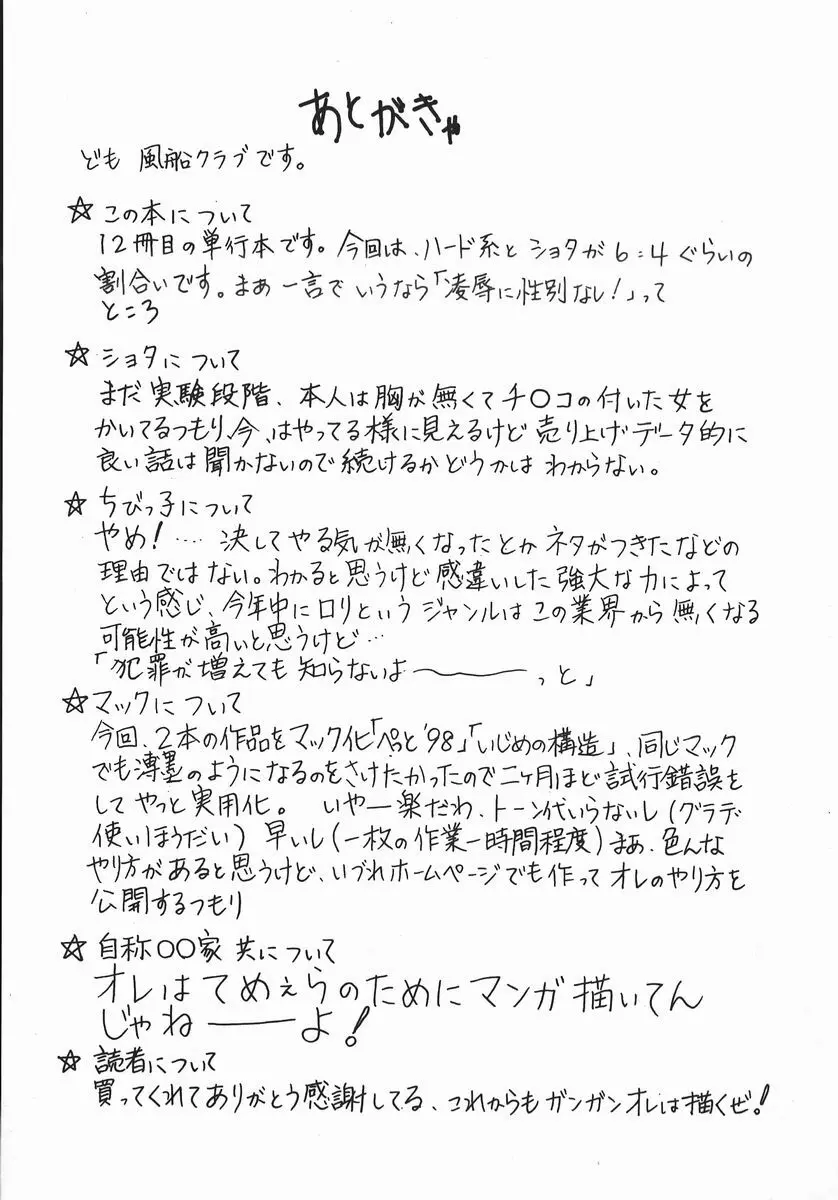 あとがきゃ
ども 風船クラブです。
☆この本について
12冊目の単行本です。今回は、ハード系とショタが6:4ぐらいの
割合いです。まあ一言でいうなら「凌辱に性別なし!」って
ところ
☆ショタについて
まだ実験段階、本人は胸が無くてチ○コの付いた女を
かいてるつもり、今、はやってる様に見えるけど売り上げデータ的に
良い話は聞かないので続けるかどうかは わからない。
☆ちびっ子について
やめ!‥‥ 決してやる気が無くなったとかネタがつきたなどの
理由ではない。わかると思うけど感違いした強大な力によって
という感じ、今年中にロリというジャンルはこの業界から無くなる
可能性が高いと思うけど…
「犯罪が増えても知らないよ〜〜っと」
☆マックについて
今回、2本の作品をマック化「ぺっと'98」「いじめの構造」、同じマック
でも薄墨のようになるのをさけたかったので二ヶ月ほど試行錯誤を
して やっと実用化。 いやー楽だわ、トーン代いらないし(グラデ
使いほうだい) 早いし(一枚の作業一時間程度)まぁ、色んな
やり方があると思うけど、いづれホームページでも作ってオレのやり方を
公開するつもり
☆自称○○家 共について
オレはてめぇらのためにマンガ描いてん
じゃねーーよ!
☆読者について
買ってくれてありがとう感謝してる、これからもガンガンオレは描くぜ!